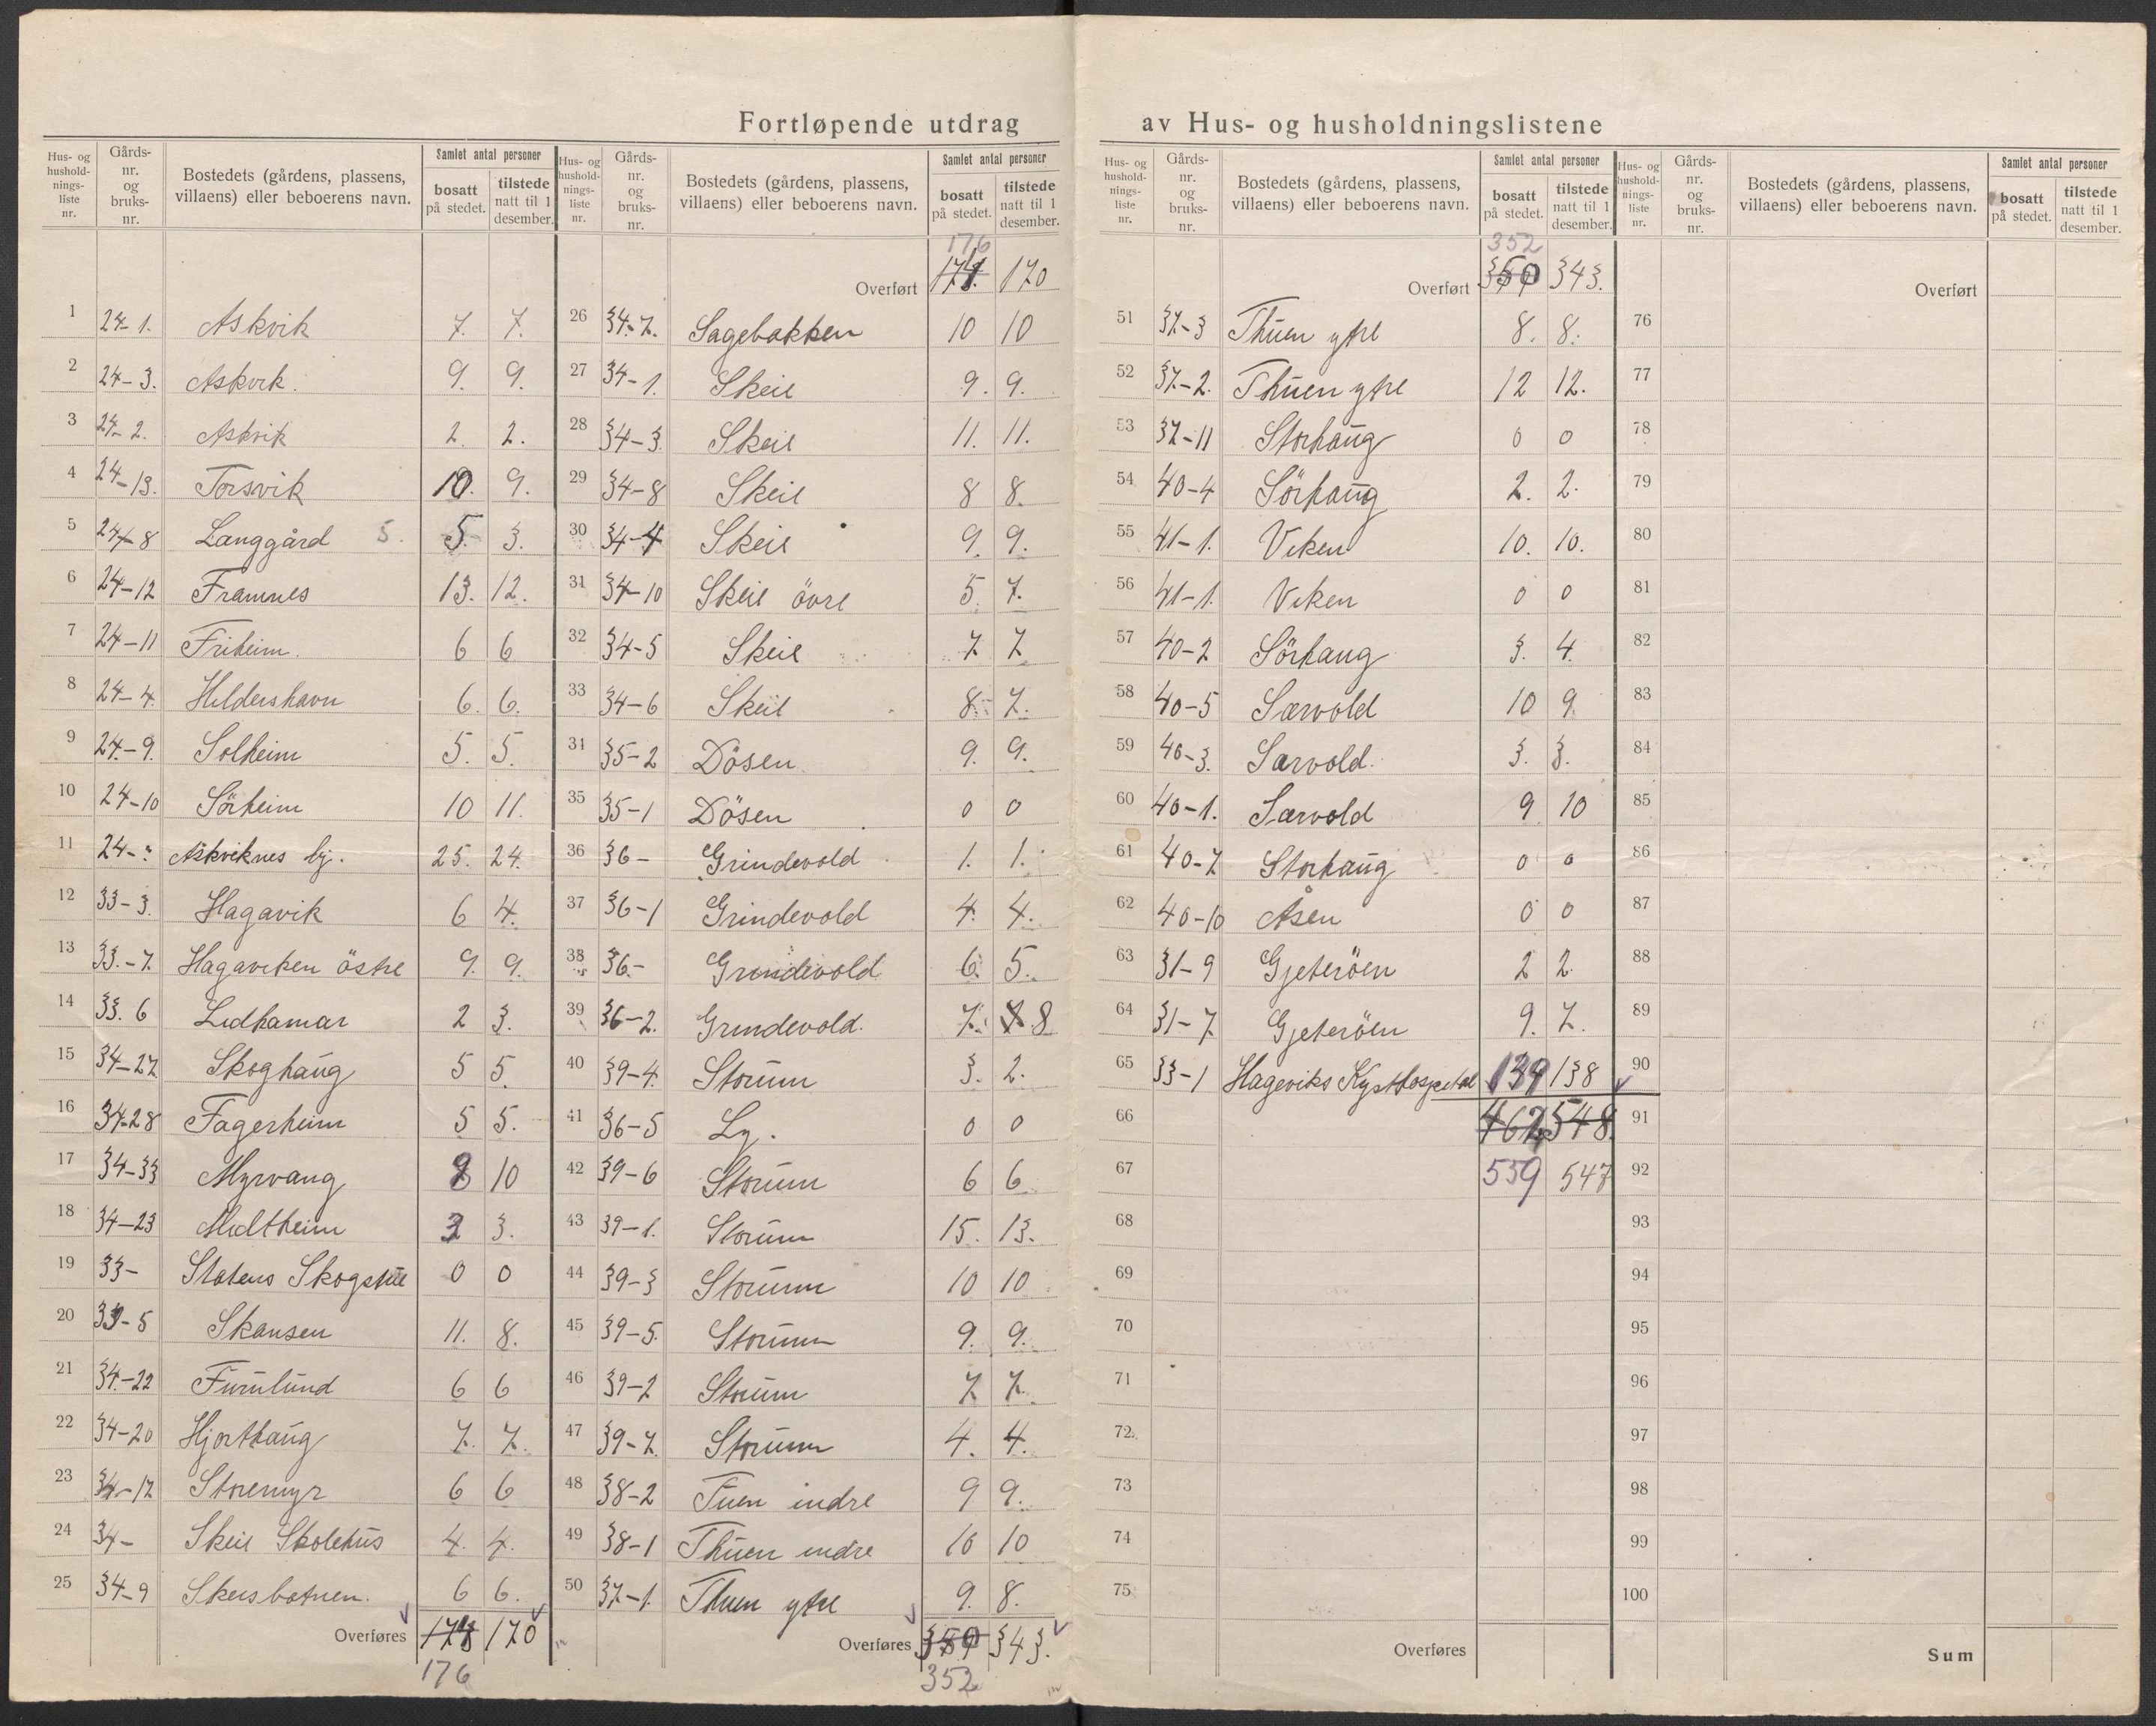 Fortløpende utdrag av Hus- og husholdningslistene
Hus- og husholdningsliste nr. Gårds- nr. og bruks- nr. Bostedets (gårdens, plassens, villaens) eller beboerens navn. Samlet antal personer bosatt på stedet. tilstede natt til 1 desember.
1 24-1. Askvik 7. 7.
2 24-3. Askvik. 9. 9.
3 24-2. Askvik 2. 2.
4 24-13. Torsvik 10. 9.
5 24-8 Langgård 5. 5. 3.
6 24-12 Framnes 13. 12.
7 24-11 Friheim. 6 6
8 24-4. Hildershavn 6. 6.
9 24-9. Solheim 5. 5.
10 24-10 Sörheim 10 11.
11 24-" Askviknes by. 25. 24.
12 33-3. Hagavik 6 4.
13 33.-7. Hagaviken östre 9. 9.
14 33. 6 Lidhamar 2 3.
15 34-27. Skoghaug 5 5.
16 34-28 Fagerheim 5 5.
17 34-33 Myrvang 10
18 34-23 Midtheim 3 3.
19 33- Statens Skogstue 0 0
20 33-5 Skansen 11. 8.
21 34-22 Furulund 6 6
22 34-20 Hjorthaug 7. 7.
23 34-17 Storemyr 6 6
24 34- Skeie Skolehus 4. 4.
25 34-9 Skeisbotnen. 6 6.
Overføres 170
176
Hus- og husholdningsliste nr. Gårds- nr. og bruks- nr. Bostedets (gårdens, plassens, villaens) eller beboerens navn. Samlet antal personer bosatt på stedet. tilstede natt til 1 desember.
176
Overført 170
26 34-7. Sagebakken 10 10
27 34-1. Skeie 9. 9.
28 34-3. Skeie 11. 11.
29 34-8 Skeie 8 8.
30 34-4 Skeie 9. 9.
31 34-10 Skeie övre 5. 7.
32 34-5 Skeie 7. 7.
33 34-6 Skeie 8. 7.
34 35-2 Dösen 9. 9.
35 35-1 Dösen 0 0
36 36- Grindevold 1. 1.
37 36-1 Grindevold 4. 4.
38 36- Grindevold 6. 5.
39 36-2. Grindevold. 7. 8
40 39-4. Storum 3. 2.
41 36-5 Ly. 0 0
42 39-6 Storum 6 6
43 39-1. Storum 15. 13.
44 39-3 Storum 10 10
45 39-5. Storum 9. 9.
46 39-2 Storum 7. 7.
47 39-7. Storum 4. 4.
48 38-2 Tuen indre 9 9.
49 38-1 Thuen indre 10 10
50 37-1. Thuen ytre 9. 8.
Overføres 343.
352
Hus- og husholdningsliste nr. Gårds- nr. og bruks- nr. Bostedets (gårdens, plassens, villaens) eller beboerens navn. Samlet antal personer bosatt på stedet. tilstede natt til 1 desember.
352
Overført 350 343.
51 37-3 Thuen ytre 8. 8.
52 37-2. Thuen ytre 12 12.
53 37-11 Storhaug 0 0
54 40-4 Sörhaug 2. 2.
55 41-1. Viken 10. 10.
56 41-1. Viken 0 0
57 40-2 Sörhaug 3. 4.
58 40-5 Særvold 10 9.
59 40-3. Særvold. 3. 3.
60 40-1. Særvold 9 10
61 40-7 Storhaug 0 0
62 40-10 Åsen 0 0
63 31-9 Gjeteröen 2 2.
64 31-7 Gjeteröen 9. 7.
65 33-1 Hageviks Kysthospital 139 138
66 462 548.
67 559 547
68
69
70
71
72
73
74
75
Overføres
Hus- og husholdningsliste nr. Gårds- nr. og bruks- nr. Bostedets (gårdens, plassens, villaens) eller beboerens navn. Samlet antal personer bosatt på stedet. tilstede natt til 1 desember.
Overført
76
77
78
79
80
81
82
83
84
85
86
87
88
89
90
91
92
93
94
95
96
97
98
99
100
Sum